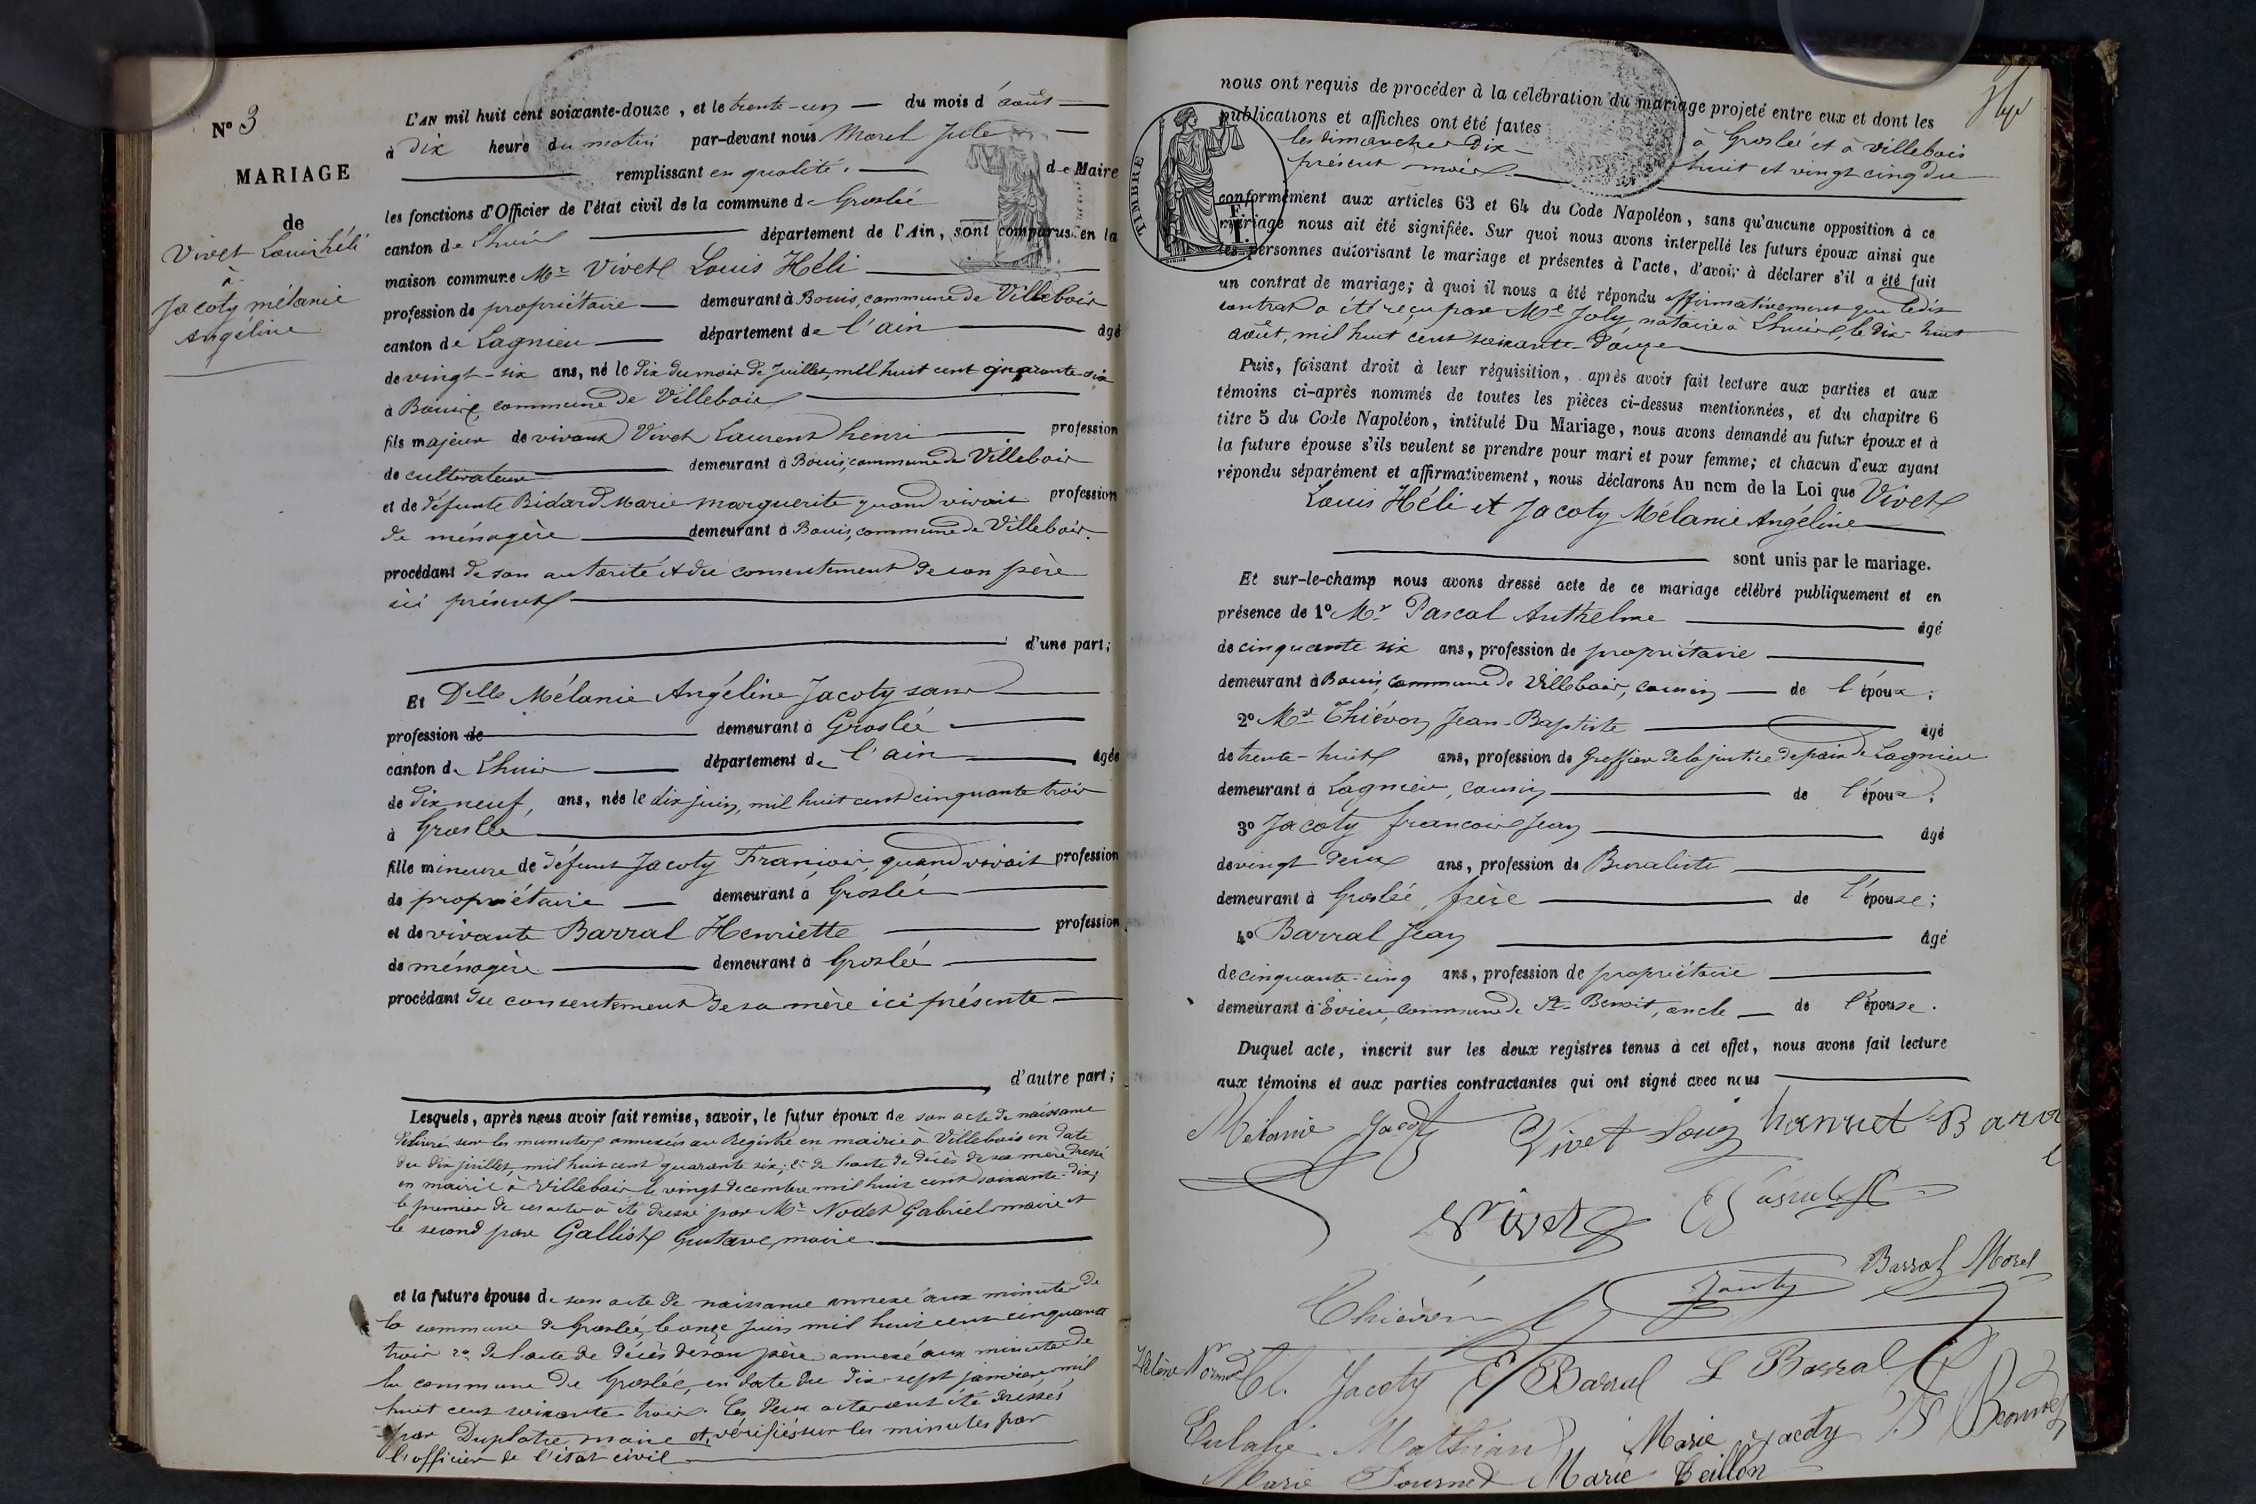 N° 3
MARIAGE
de
Vivet Louis Héli
à
Jacoty mélanie
Angéline
L'AN mil huit cent soixante-douze, et le trente-un du mois d'août
à dix heure du matin par-devant nous Morel Jules
remplissant en qualité de Maire
les fonctions d'Officier de l'état civil de la commune de Groslée
canton de Lhuis département de l'Ain, sont comparus en la
maison commune Mr Vivet Louis Héli
profession de propriétaire demeurant à Bouis, commune de Villebois
canton de Lagnieu département de l'ain âgé
de vingt-six ans, né le dix du mois de Juillet, mil huit cent
à Bouis, commune de Villebois
fils majeur de vivant Vivet Laurent henri profession
de cultivateur demeurant à Bouis, commune de Villebois
et de défunte Bidard Marie Marguerite quand vivait profession
de ménagère demeurant à Bouis, commune de Villebois.
procédant de son autorité et du consentement de son père
ici présent
d'une part;
Et Delle Mélanie Angéline Jacoty sans
profession de demeurant à Groslée
canton de Lhuis département de l'ain âgée
de dix neuf, ans, née le dix juin, mil huit cent cinquante trois
à Groslée
fille mineure de défunt Jacoty François, quand vivait profession
de propriétaire demeurant à Groslée
et de vivante Barral Henriette profession
de ménagère demeurant à Groslée
procédant du consentement de sa mère ici présente
d'autre part;
Lesquels, après nous avoir fait remise, savoir, le futur époux de son acte de naissance
délivré sur les minutes annexées au Registre en mairie à Villebois en date
du dix juillet, mil huit cent quarante six; 2° de l'acte de décès de sa mère dressé
en mairie à Villebois le vingt decembre mil huit cent soixante-dix;
le premier de ces actes a été dressé par Mr Nodet Gabriel maire et
le second par Gallist Gustave, maire
et la future épouse de son acte de naissance annexé aux minutes de
la commune de Groslée, le onze Juin mil huit cent cinquante
trois 2° de l'acte de décès de son père annexé aux minutes de
la commune de Groslée, en date du dix-sept janvier, mil
huit cent soixante-trois. Ces deux actes ont été dressés
par Duplatre, maire et, vérifiés sur les minutes par
l'officier de l'état civil
nous ont requis de procéder à la célébration du mariage projeté entre eux et dont les
publications et affiches ont été faites à Groslée et à Villebois
les dimanches dix-huit et vingt cinq du
présent mois
TIMBRE
conformément aux articles 63 et 64 du Code Napoléon, sans qu'aucune opposition à ce
mariage nous ait été signifiée. Sur quoi nous avons interpellé les futurs époux ainsi que
les personnes autorisant le mariage et présentes à l'acte, d'avoir à déclarer s'il a été fait
un contrat de mariage; à quoi il nous a été répondu affirmativement que ledit
contrat a été reçu par Me Joly, notaire à Lhuis, le dix-huit
août, mil huit cent soixante-douze
Puis, faisant droit à leur réquisition, après avoir fait lecture aux parties et aux
témoins ci-après nommés de toutes les pièces ci-dessus mentionnées, et du chapitre 6
titre 5 du Code Napoléon, intitulé Du Mariage, nous avons demandé au futur époux et à
la future épouse s'ils veulent se prendre pour mari et pour femme; et chacun d'eux ayant
répondu séparément et affirmativement, nous déclarons Au nom de la Loi que Vivet
Louis Héli et Jacoty Mélanie Angéline
sont unis par le mariage.
Et sur-le-champ nous avons dressé acte de ce mariage célébré publiquement et en
présence de 1° Mr Pascal Anthelme âgé
de cinquante six ans, profession de propriétaire
demeurant à Bouis, commune de Villebois, cousin de l'époux;
2° Mr Thiévon Jean-Baptiste âgé
de trente-huit ans, profession de Greffier de la justice de paix de Lagnieu
demeurant à Lagnieu, cousin de l'époux;
3° Jacoty francois Jean âgé
de vingt deux ans, profession de Buraliste
demeurant à Groslée, frère de l'épouse;
4° Barral Jean âgé
de cinquante-cinq ans, profession de propriétaire
demeurant à Evieu, commune de St-Benoit, oncle de l'épouse.
Duquel acte, inscrit sur les deux registres tenus à cet effet, nous avons fait lecture
aux témoins et aux parties contractantes qui ont signé avec nous
Mélanie Jacoty Vivet Louis
Vivet Pascal
Thiévon Jacoty Barral Morel
Cl. Jacoty E Barral L Barral
Eulalie Mathian Marie Jacoty
Marie Fournet Marie Teillon